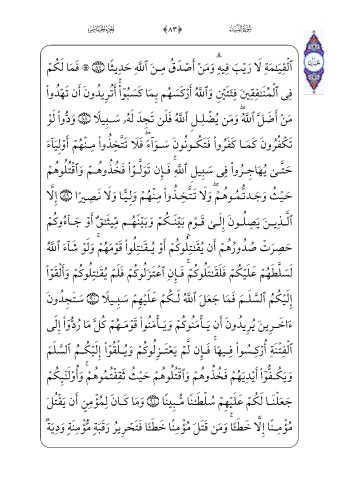 سورة النساء ﴿٨٣﴾ الجزء الخامس
ٱلۡقِيَٰمَةِ لَا رَيۡبَ فِيهِۗ وَمَنۡ أَصۡدَقُ مِنَ ٱللَّهِ حَدِيثٗا ٨٧ ۞ فَمَا لَكُمۡ
فِي ٱلۡمُنَٰفِقِينَ فِئَتَيۡنِ وَٱللَّهُ أَرۡكَسَهُم بِمَا كَسَبُوٓاْۚ أَتُرِيدُونَ أَن تَهۡدُواْ
مَنۡ أَضَلَّ ٱللَّهُۖ وَمَن يُضۡلِلِ ٱللَّهُ فَلَن تَجِدَ لَهُۥ سَبِيلٗا ٨٨ وَدُّواْ لَوۡ
تَكۡفُرُونَ كَمَا كَفَرُواْ فَتَكُونُونَ سَوَآءٗۖ فَلَا تَتَّخِذُواْ مِنۡهُمۡ أَوۡلِيَآءَ
حَتَّىٰ يُهَاجِرُواْ فِي سَبِيلِ ٱللَّهِۚ فَإِن تَوَلَّوۡاْ فَخُذُوهُمۡ وَٱقۡتُلُوهُمۡ
حَيۡثُ وَجَدتُّمُوهُمۡۖ وَلَا تَتَّخِذُواْ مِنۡهُمۡ وَلِيّٗا وَلَا نَصِيرًا ٨٩ إِلَّا
ٱلَّذِينَ يَصِلُونَ إِلَىٰ قَوۡمِۭ بَيۡنَكُمۡ وَبَيۡنَهُم مِّيثَٰقٌ أَوۡ جَآءُوكُمۡ
حَصِرَتۡ صُدُورُهُمۡ أَن يُقَٰتِلُوكُمۡ أَوۡ يُقَٰتِلُواْ قَوۡمَهُمۡۚ وَلَوۡ شَآءَ ٱللَّهُ
لَسَلَّطَهُمۡ عَلَيۡكُمۡ فَلَقَٰتَلُوكُمۡۚ فَإِنِ ٱعۡتَزَلُوكُمۡ فَلَمۡ يُقَٰتِلُوكُمۡ وَأَلۡقَوۡاْ
إِلَيۡكُمُ ٱلسَّلَمَ فَمَا جَعَلَ ٱللَّهُ لَكُمۡ عَلَيۡهِمۡ سَبِيلٗا ٩٠ سَتَجِدُونَ
ءَاخَرِينَ يُرِيدُونَ أَن يَأۡمَنُوكُمۡ وَيَأۡمَنُواْ قَوۡمَهُمۡ كُلَّ مَا رُدُّوٓاْ إِلَى
ٱلۡفِتۡنَةِ أُرۡكِسُواْ فِيهَاۚ فَإِن لَّمۡ يَعۡتَزِلُوكُمۡ وَيُلۡقُوٓاْ إِلَيۡكُمُ ٱلسَّلَمَ
وَيَكُفُّوٓاْ أَيۡدِيَهُمۡ فَخُذُوهُمۡ وَٱقۡتُلُوهُمۡ حَيۡثُ ثَقِفۡتُمُوهُمۡۚ وَأُوْلَٰٓئِكُمۡ
جَعَلۡنَا لَكُمۡ عَلَيۡهِمۡ سُلۡطَٰنٗا مُّبِينٗا ٩١ وَمَا كَانَ لِمُؤۡمِنٍ أَن يَقۡتُلَ
مُؤۡمِنًا إِلَّا خَطَـٔٗاۚ وَمَن قَتَلَ مُؤۡمِنًا خَطَـٔٗا فَتَحۡرِيرُ رَقَبَةٖ مُّؤۡمِنَةٖ وَدِيَةٞ